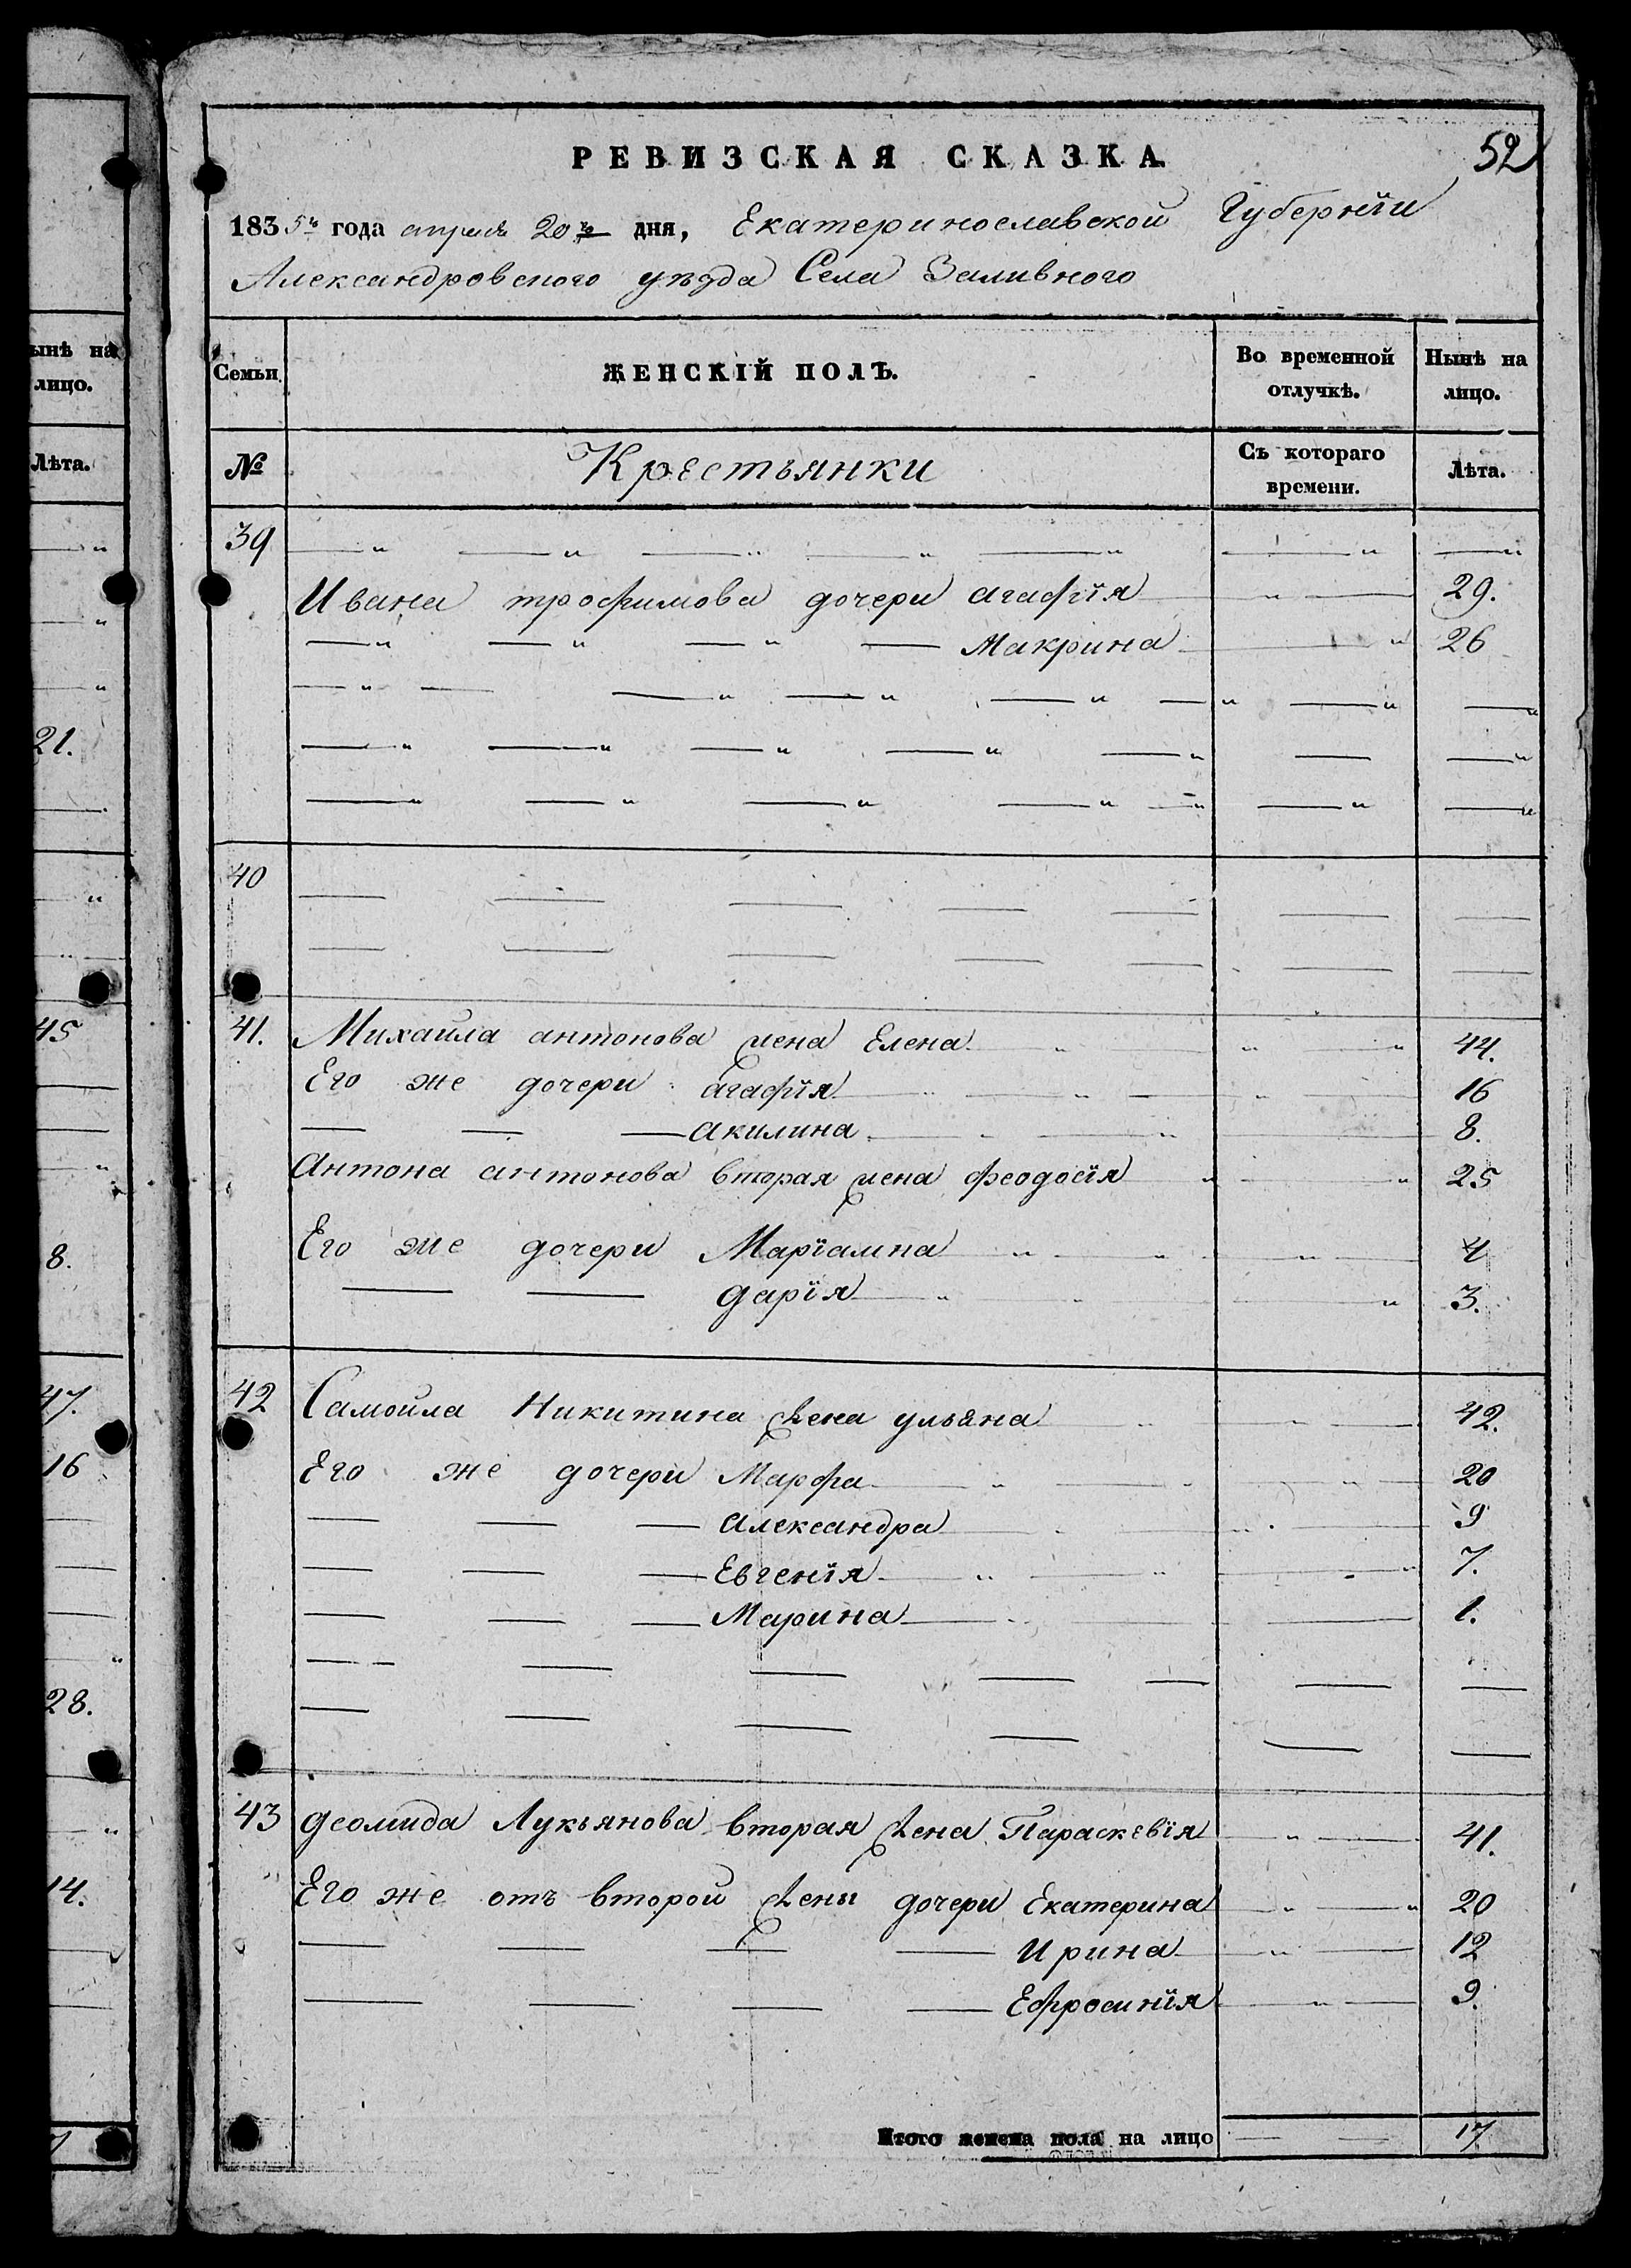 РЕВИЗСКАЯ СКАЗКА.
52
1835го года апреля 20го дня, Екатеринославской Губернїи
Александровского уѣзда Села Заливного
Семьи.
ЖЕНСКІЙ ПОЛЪ.
Во временной отлучкѣ.
Нынѣ на лицо.
№
Крестьянки
Съ котораго времени.
Лѣта.
39
Ивана трофимова дочери агафїя 29.
Макрина 26
40
41. Михайла антонова жена Елена 44.
Его же дочери агафїя 16
акилина 8.
Антона антонова вторая жена феодосїя 25
Его же дочери Марїамна 4
дарїя 3.
42 Самойла Никитина жена ульяна 42.
Его же дочери Марфа 20
александра 9
Евгенїя 7.
Марина 1.
43 деомида Лукьянова вторая жена Параскевїя 41.
Его же отъ второй жены дочери Екатерина 20
Ирина 12
Ефросинїя 9.
Итого женска пола на лицо 17
ынѣ на
лицо.
Лѣта.
21.
45
8.
47.
16
28.
14.